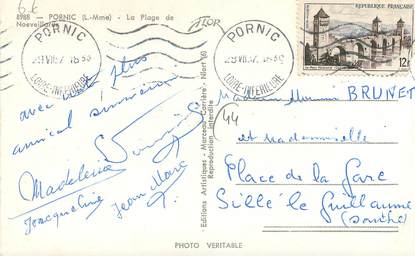 6 €
8988 - PORNIC (L.-Mme) - La Plage de
Noeveillard
PORNIC
29 VII 57 18 30
LOIRE-INFÉRIEURE
PORNIC
29 VII 57 18 30
LOIRE-INFÉRIEURE
RÉPUBLIQUE FRANÇAISE
12F
avec nos plus
amical souvenir
Madeleine
Jacqueline
Jean Marc
Editions Artistiques - Marcel Carrière - Niort 60
Reproduction interdite
BRUNET
44
et Mademoiselle
Place de la Gare
Sillé le Guillaume
(Sarthe)
PHOTO VERITABLE